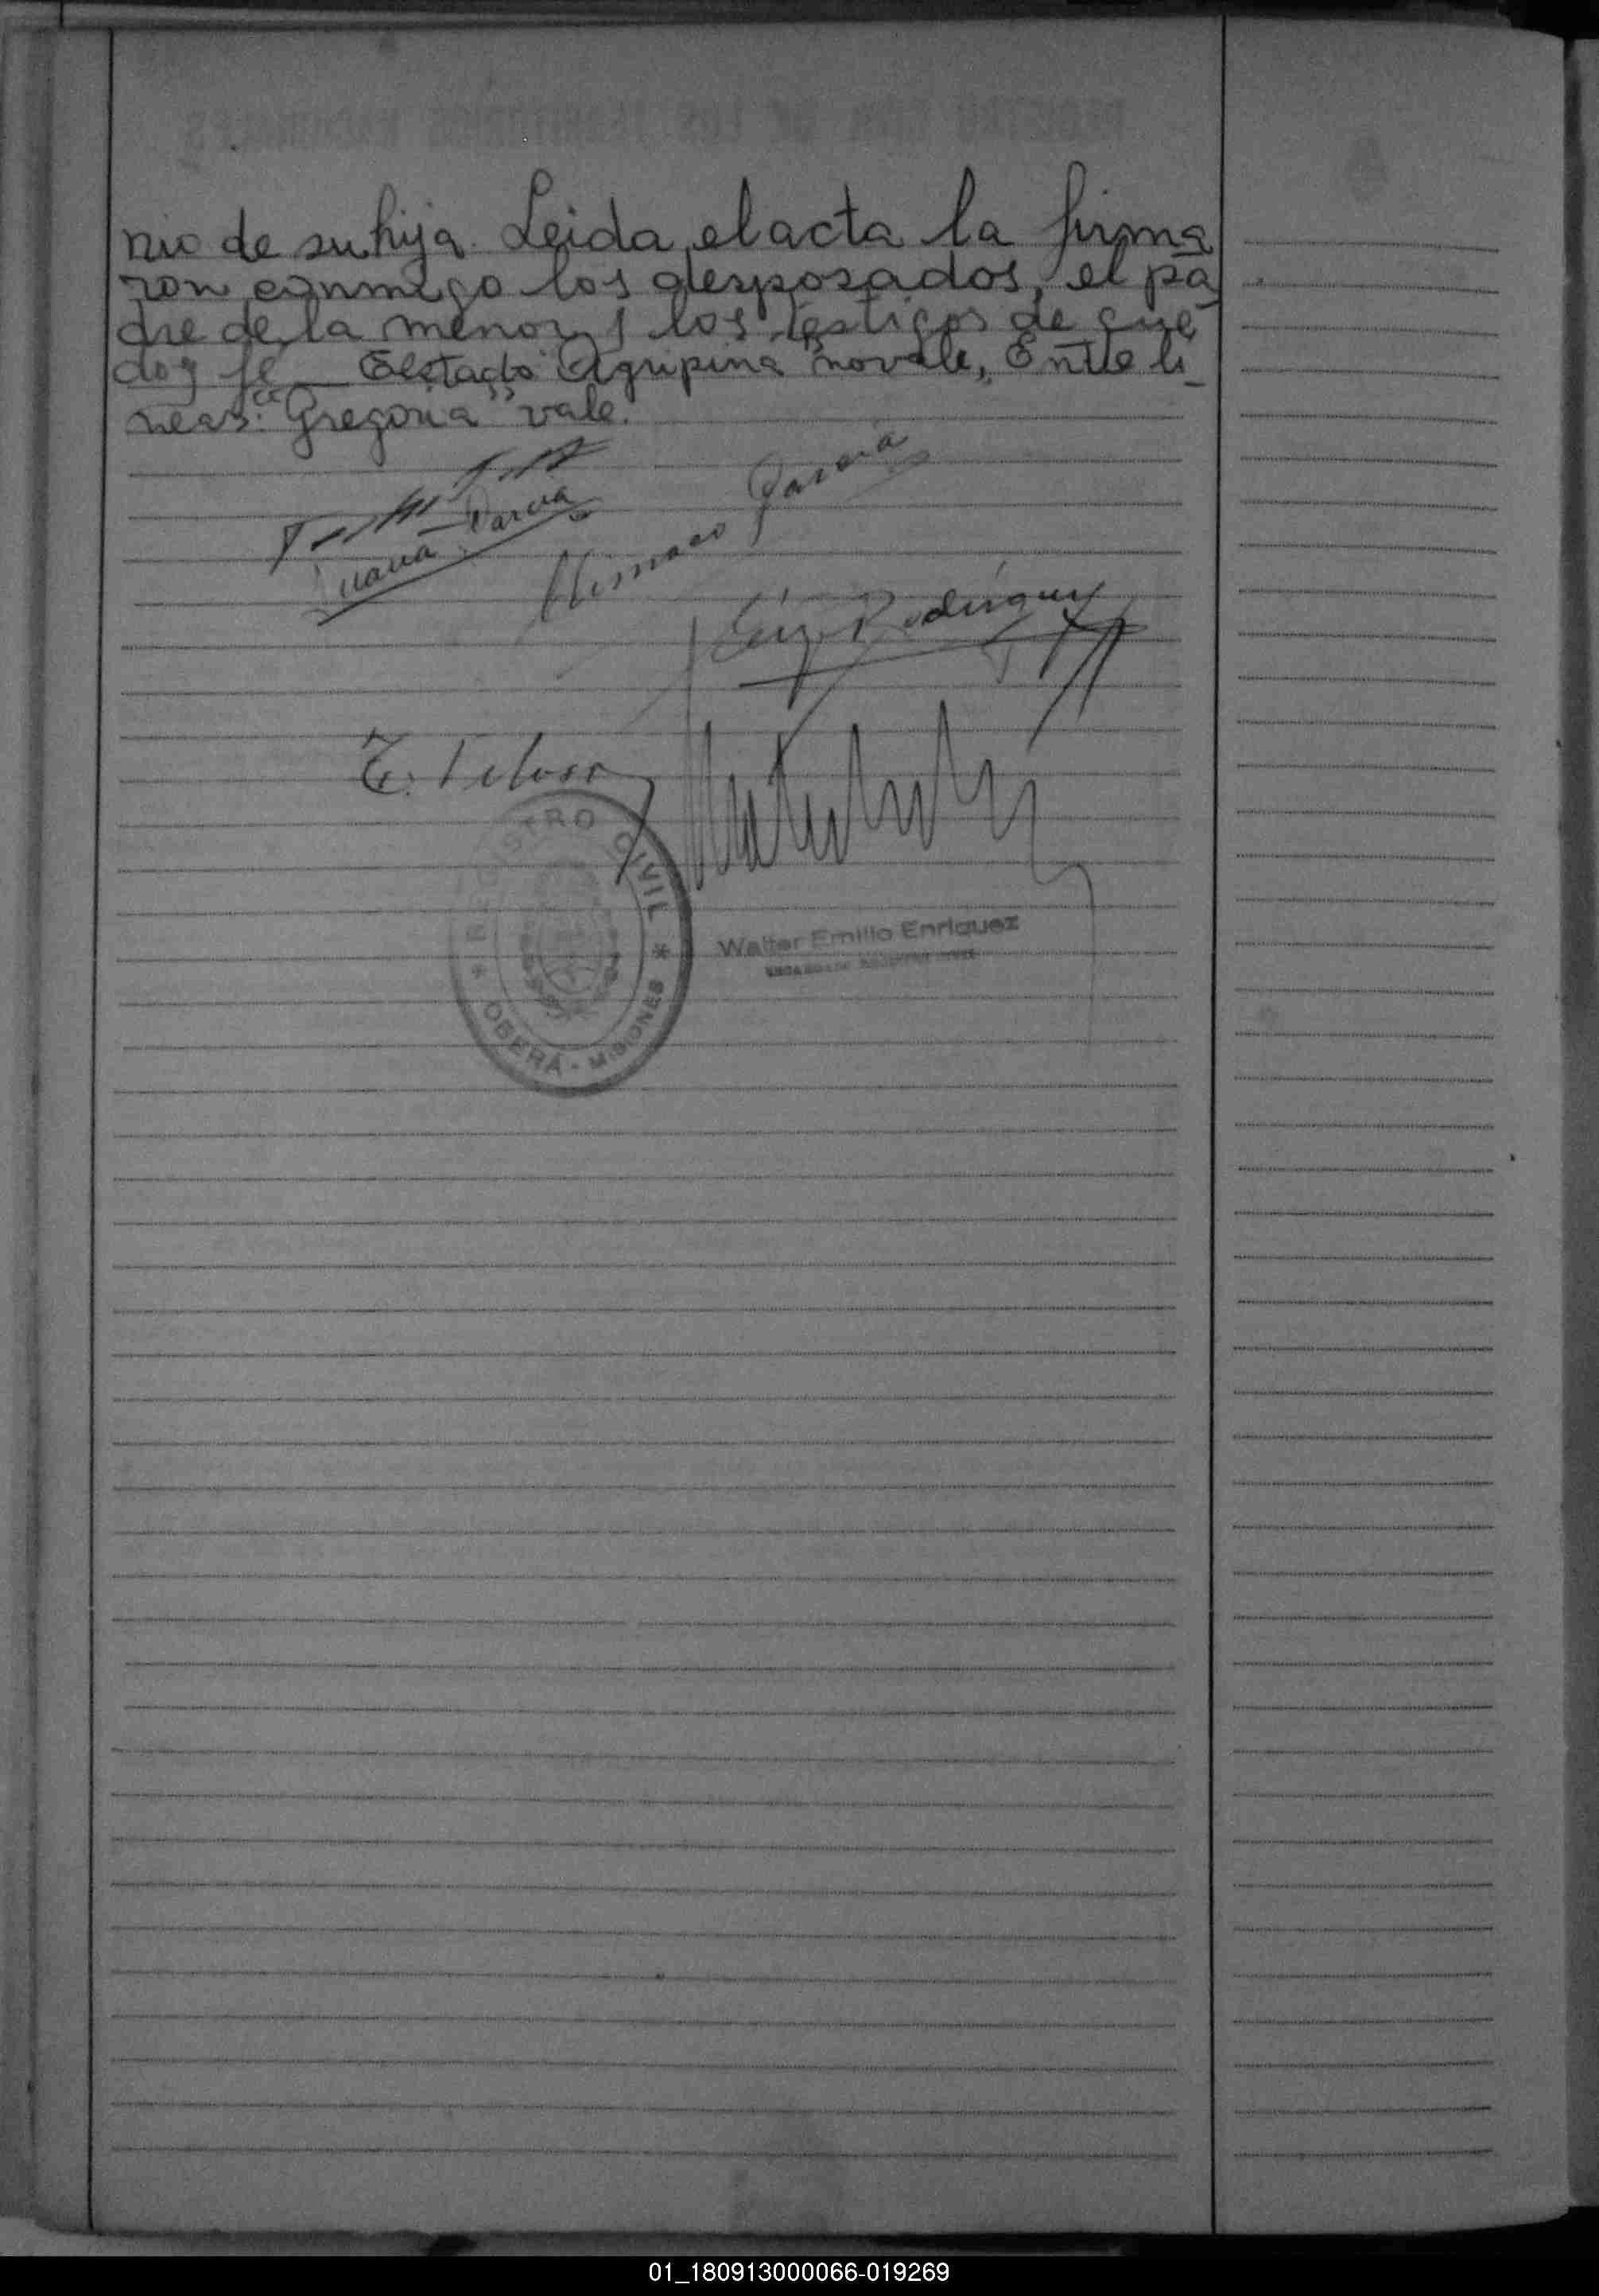 nio de su hija. Leida el acta la firma
ron conmigo los desposados, el pa
dre de la menor y los testigos de que
doy fé Agripina "no vale, Entre li_
neas: "Gregoria" vale.
Juana
Rodriguez
REGISTRO CIVIL
* OBERÁ - MISIONES *
Walter Emilio Enriquez
01_180913000066-019269